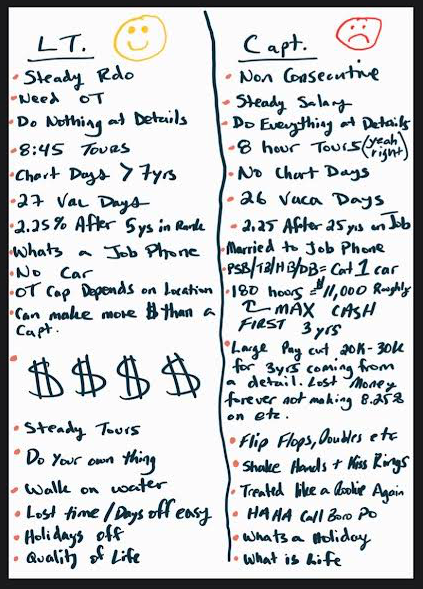 LT.
• Steady Rdo
• Need OT
• Do Nothing at Details
• 8:45 Tours
• Chart Days > 7yrs
• 27 Vac Days
• 2.25% After 5ys in Rank
• Whats a Job Phone
• No Car
• OT Cap Depends on Location
• Can make more $ than a
Capt.
• $ $ $ $
• Steady Tours
• Do Your own thing
• Walk on water
• Lost time/Days off easy
• Holidays off
• Quality of Life
Capt.
• Non Consecutive
• Steady Salary
• Do Everything at Details
• 8 hour Tours (yeah
right)
• No Chart Days
• 26 Vaca Days
• 2.25 After 25yrs on Job
• Married to Job Phone
• PSB/TB/HB/DB = Cat 1 car
• 180 hours = $11,000 Roughly
MAX CASH
FIRST 3 yrs
• Large Pay cut 20K-30K
for 3yrs coming from
a detail. Lost Money
forever not making 8.25%
on etc.
• Flip Flops, Doubles etc
• Shake Hands + Kiss Rings
• Treated like a Rookie Again
• HAHA Call Boro PO
• Whats a Holiday
• What is Life